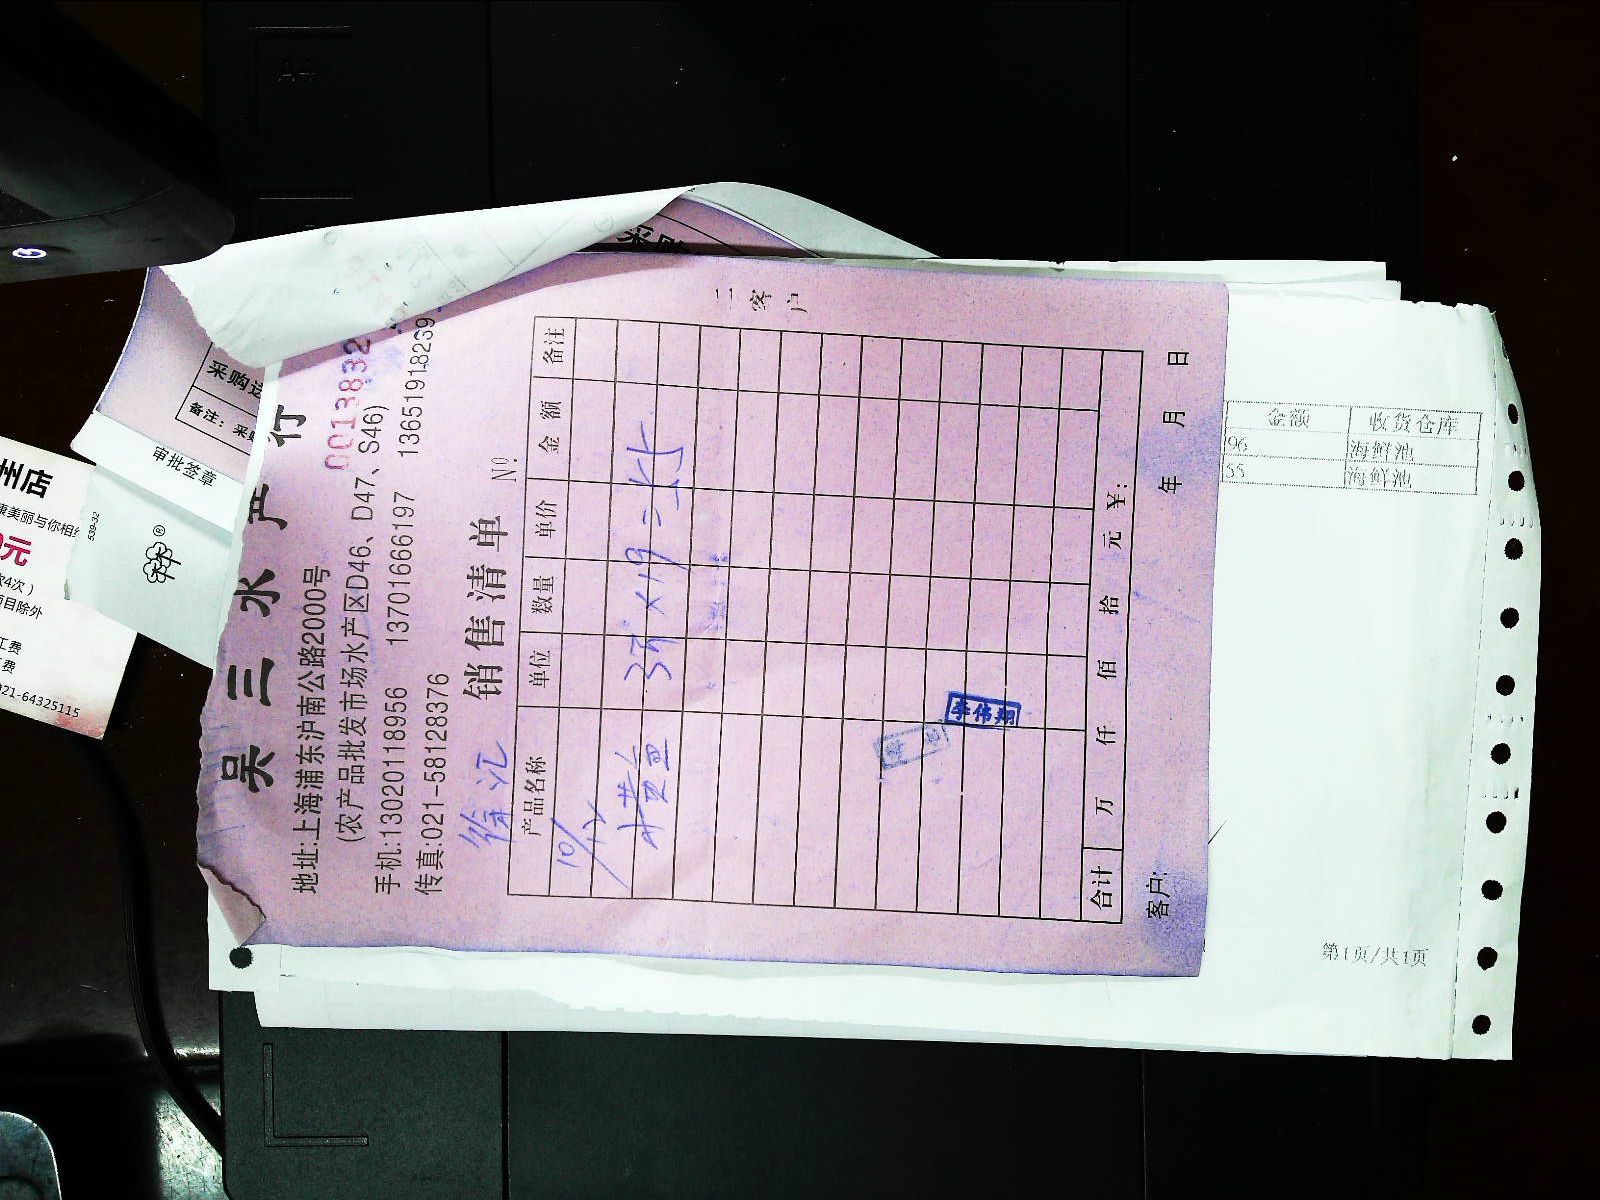 吴三水产行
地址:上海浦东沪南公路2000号
(农产品批发市场水产区D46、D47、S46)
0013832
手机:13020118956 13701666197 13651918239
传真:021-58128376
销售清单 №
徐汇
产品名称 单位 数量 单价 金额 备注
10/12
小黄鱼 3斤×19=
合计 万 仟 佰 拾 元 ¥:
客户: 年 月 日
二 客户
李伟翔
采购
采购
备注: 采购
审批签章
539-32
州店
康美丽与你相
元
次4次)
项目除外
工费
费
021-64325115
金额 收货仓库
96 海鲜池
55 海鲜池
第1页/共1页